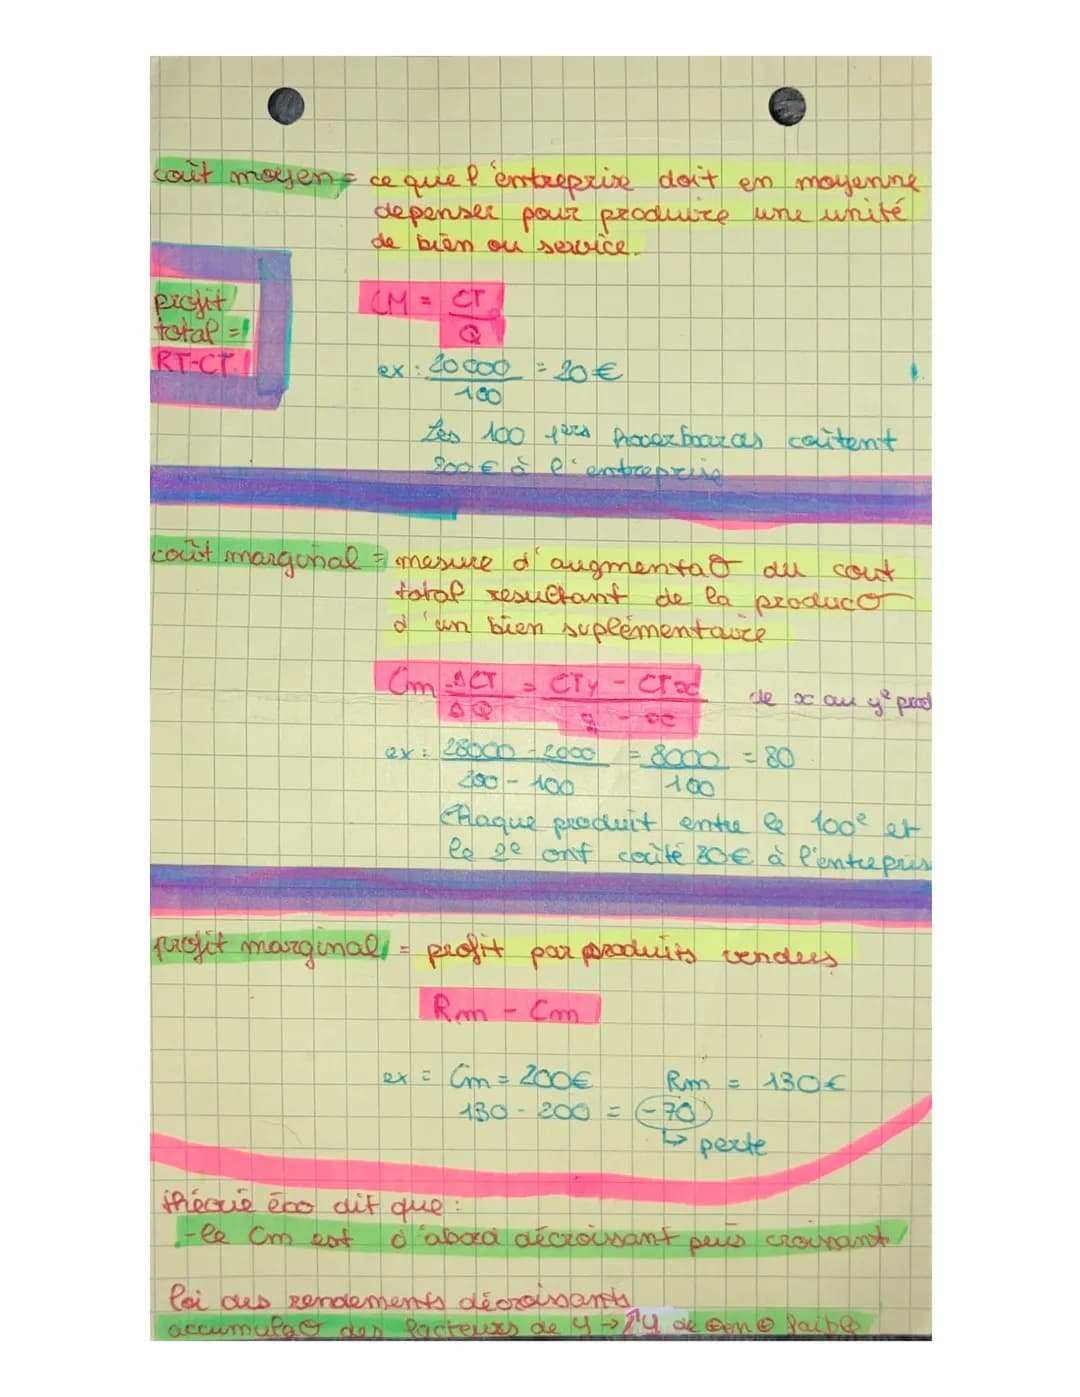 coût moyen = ce que l'entreprise doit en moyenne
depenser pour produire une unité
de bien ou service.
profit
total =
RT-CT
CM = CT
Q
ex : 20000 = 20€
100
Les 100 1ers hoverboards coûtent
200€ à l'entreprise
coût marginal = mesure d'augmentaO du cout
total resultant de la producO
d'un bien suplémentaire
Cm = ΔCT = CTy - CTx
ΔQ y - x
de x au ye prod
ex : 28000 - 2000 = 8000 = 80
200 - 100 100
Chaque produit entre le 100e et
le 2e ont coûté 80€ à l'entrepris
profit marginal = profit par produits vendus
Rm - Cm
ex = Cm = 200€ Rm = 130€
130 - 200 = -70
↳ perte
théorie éco dit que :
- le Cm est d'abord décroissant puis croissant
loi des rendements décroissants
accumulaO des facteurs de y → ↑y de ⊕ en ⊖ faible